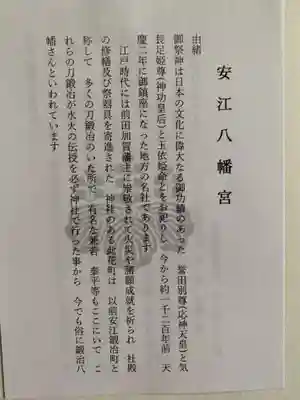 安江八幡宮
由緒
御祭神は日本の文化に偉大なる御功績のあった　誉田別尊(応神天皇)と気
長足姫尊(神功皇后)と玉依姫命とをお祀りし　今から約一千二百年前　天
慶二年に御鎮座になった地方の名社であります
江戸時代には前田加賀藩主に崇敬されて火災や諸願成就を祈られ　社殿
の修繕及び祭器具を寄進された　神社のある此花町は　以前安江鍛冶町と
称して　多くの刀鍛冶がいた所で　有名な兼若　泰平等もここにいて　こ
れらの刀鍛冶が水火の伝授を必ず神社で行った事から　今でも俗に鍛冶八
幡さんといわれています